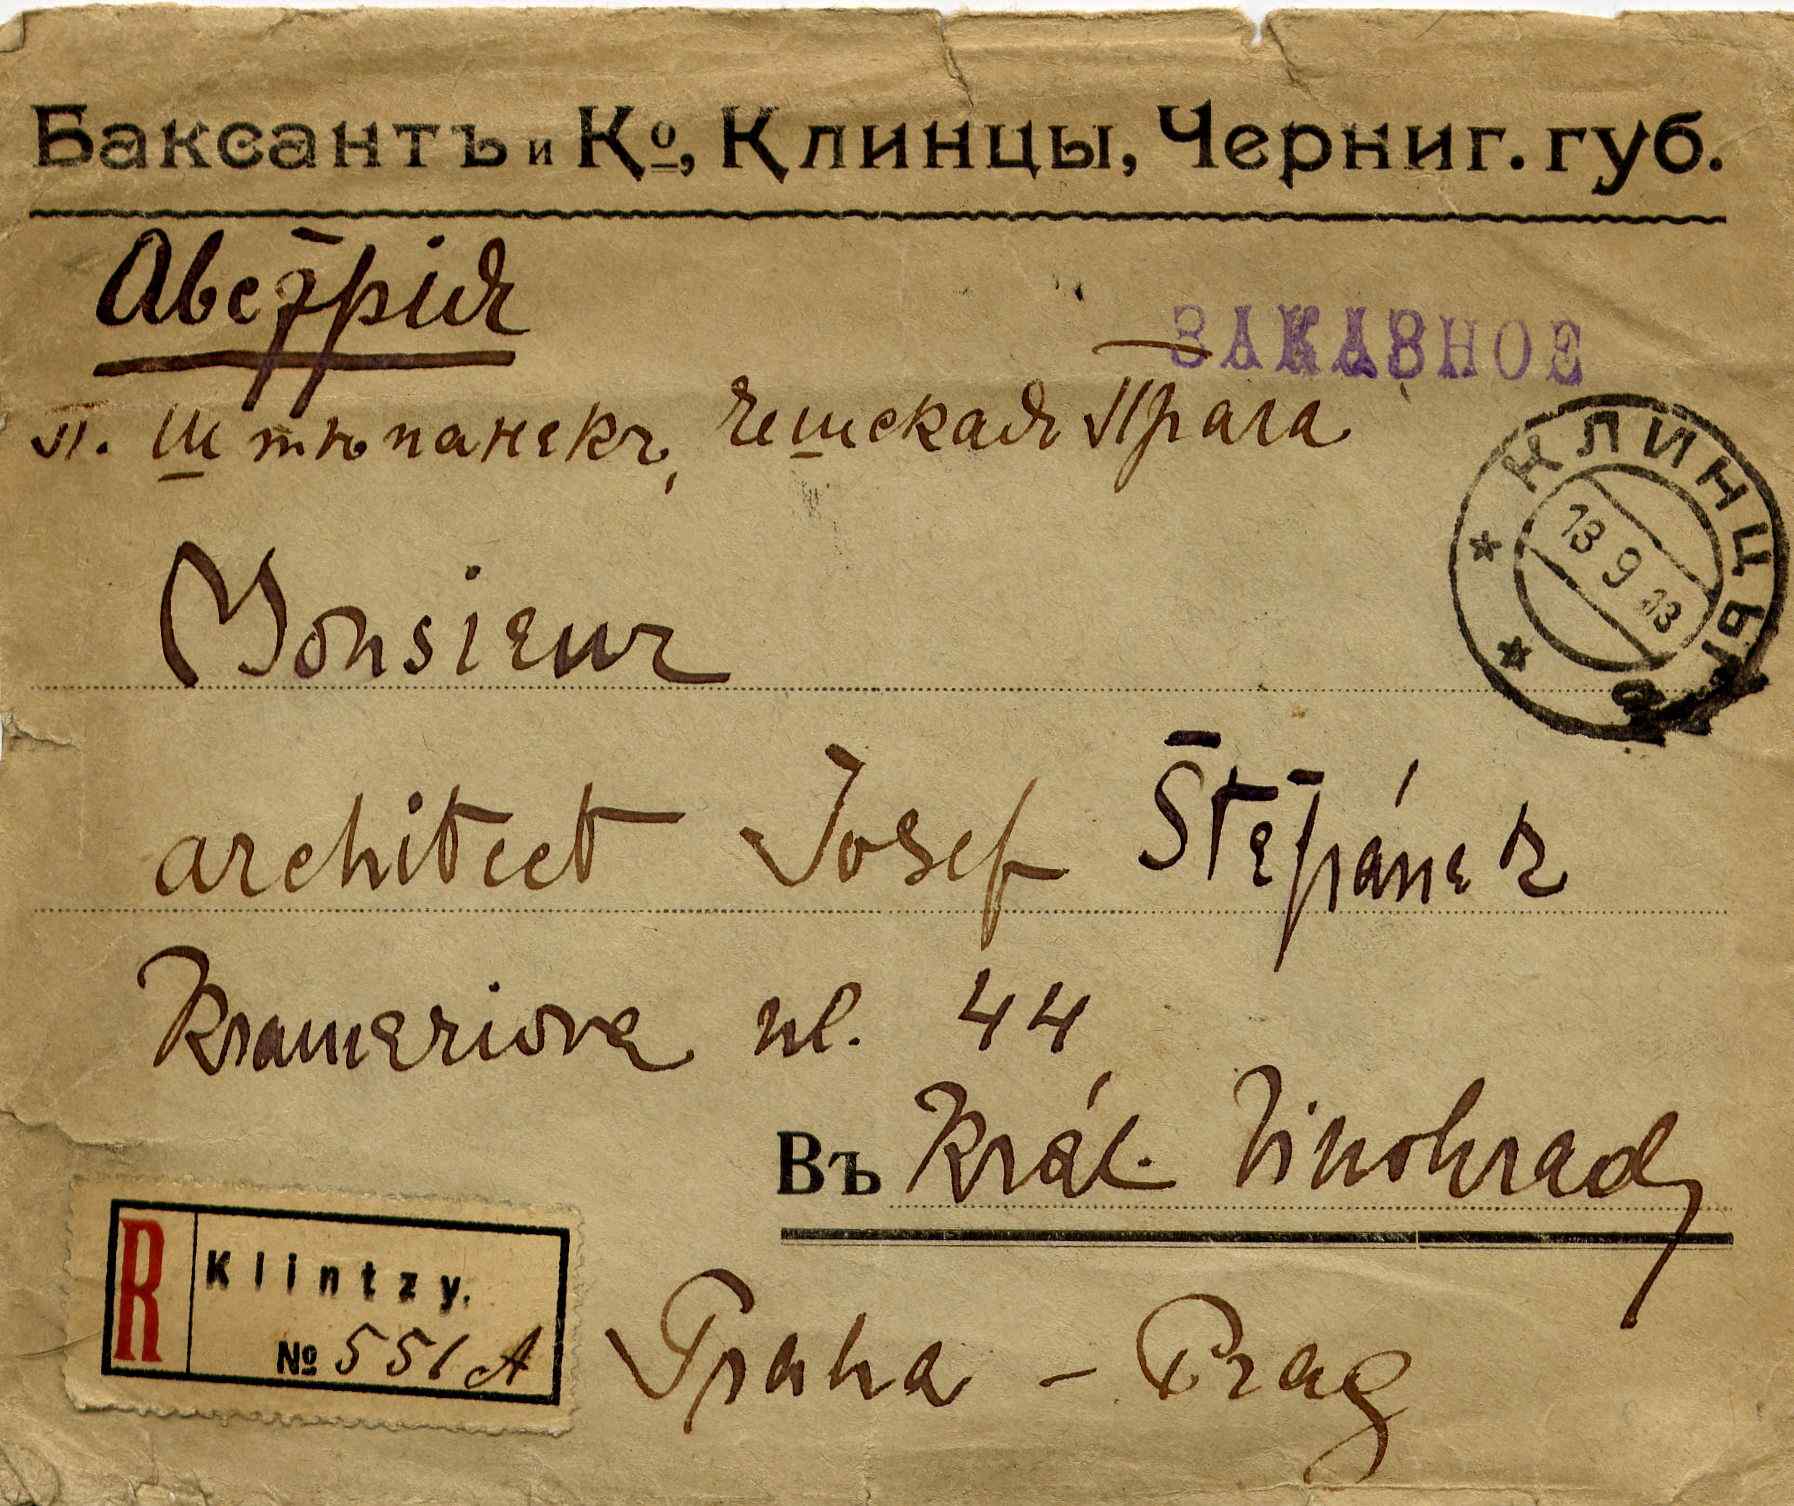 Баксантъ и Кº, Клинцы, Черниг. губ.
Австрія
ЗАКАЗНОЕ
П. Штѣпанекъ, Чешская Прага
КЛИНЦЫ
13 9 13
Monsieur
architect Josef Štěpánek
Krameriova ul. 44
Въ Král. Vinohrady
R Klintzy.
№ 551 A
Praha - Prag